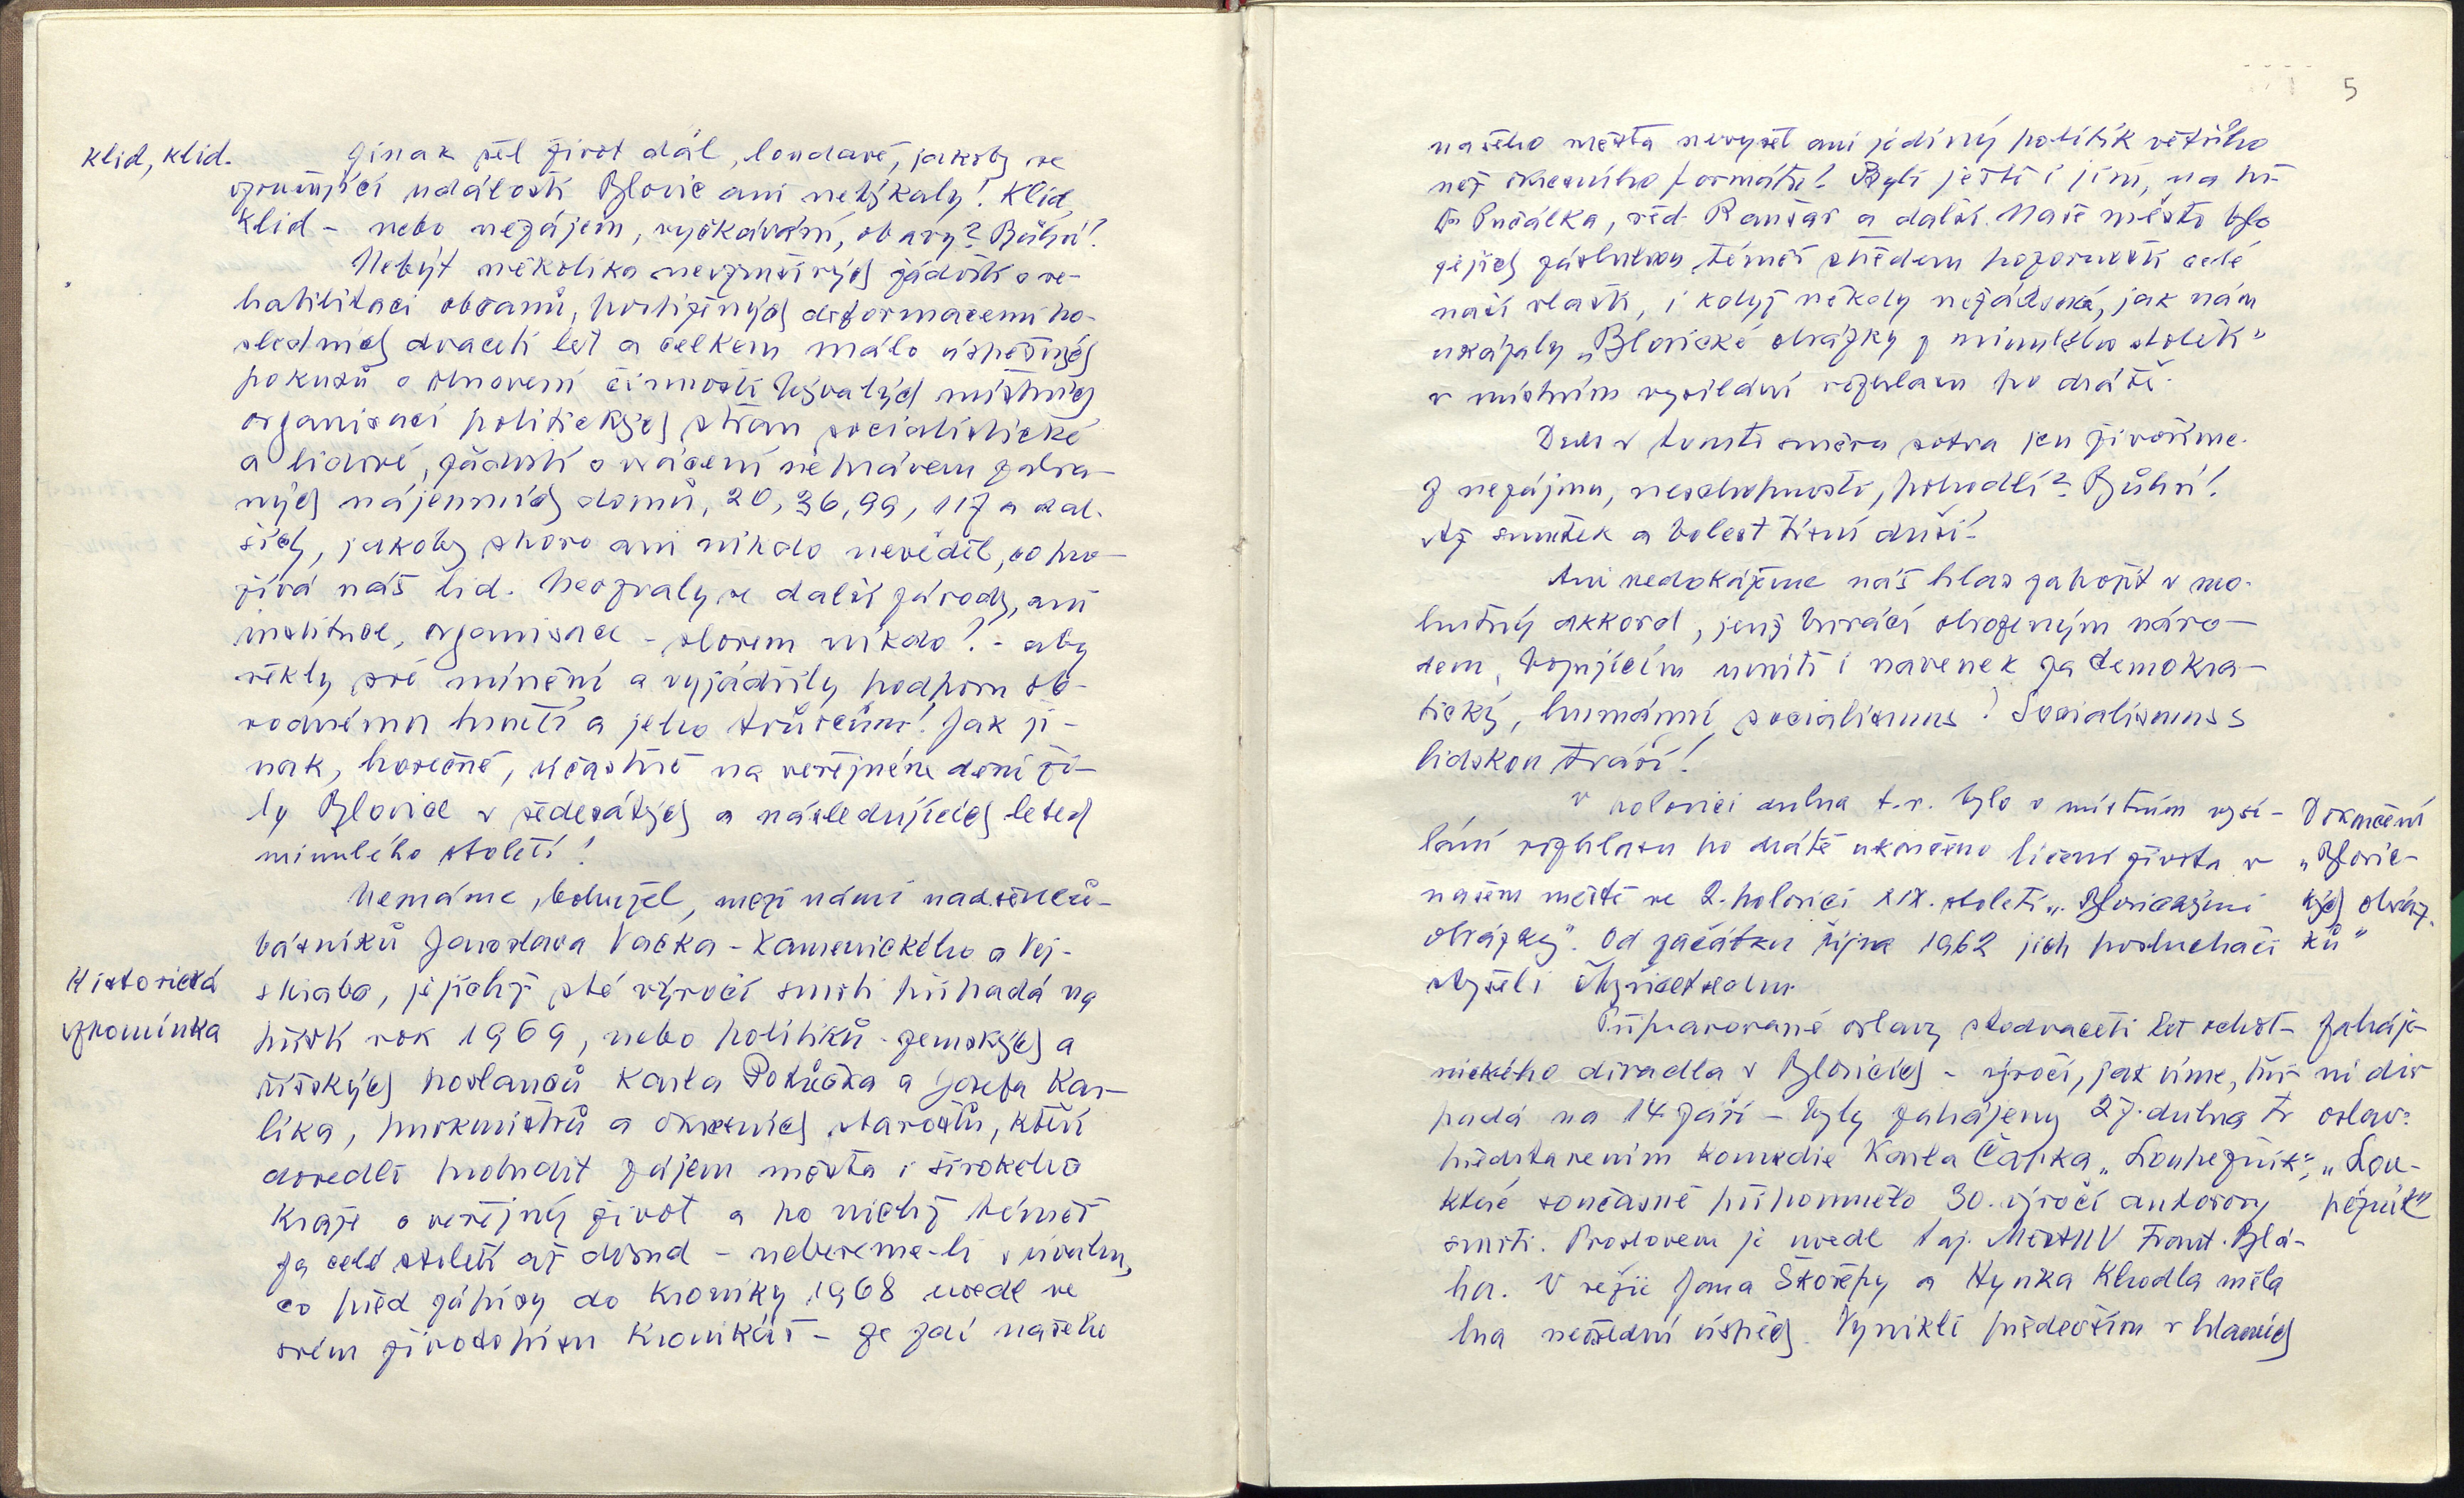 Klid, klid.
Jinak šel život dál, loudavě, jakoby se
vzrušující události Blovic ani netýkaly! Klid,
klid - nebo nezájem, vyčkávání, obavy? Bůhví!
Nebýt několika nevzrušivých žádostí o re-
habilitaci občanů, postižených deformacemi po-
sledních dvaceti let a celkem málo úspěšných
pokusů o obnovení činnosti bývalých místních
organisací politických stran socialistické
a lidové, žádostí o vrácení neprávem zabra-
ných nájemních domů, 20, 36, 99, 117 a dal-
ších, jakoby skoro ani nikdo nevěděl, co pro-
žívá náš lid. Neozvaly se další závody, ani
instituce, organisace - slovem nikdo! - aby
řekly své mínění a vyjádřily podporu ob-
rodnému hnutí a jeho tvůrcům! Jak ji-
nak, horečně, účastně na veřejném dění ži-
ly Blovice v šedesátých a následujících letech
minulého století!
Nemáme, bohužel, mezi námi nadšenců-
básníků Jaroslava Vacka-Kamenického a Vej-
skraba, jejichž sté výročí smrti připadá na
Historická
vzpomínka
příští rok 1969, nebo politiků - zemských a
říšských poslanců Karla Potůčka a Josefa Kar-
líka, purkmistrů a okresních starostů, kteří
dovedli probudit zájem města i širokého
kraje o veřejný život a po nichž téměř
za celé století až dosud - nebereme-li v úvahu,
co před zápisy do kroniky 1968 uvedl ve
svém životopisu kronikář - ze zdí našeho
5
našeho města nevyšel ani jediný politik většího
než okresního formátu! Byli ještě i jiní, na př.
Dr Pušálka, řed. Raušar a další. Naše město bylo
jejich zásluhou téměř středem pozornosti celé
naší vlasti, i když někdy nežádoucí, jak nám
ukázaly „Blovické obrázky z minulého století"
v místním vysílání rozhlasu po drátě.
Dnes v tomto směru sotva jen živoříme.
Z nezájmu, neschopnosti, pohodlí? Bůhví!
Až smutek a bolest tísní duši!
Ani nedokážeme náš hlas zapojit v mo-
hutný akkord, jenž burácí obrozeným náro-
dem, bojujícím uvnitř i navenek za demokra-
tický, humánní, socialismus! Socialismus s
lidskou tváří!
V polovici dubna t.r. bylo v místním vysí-
lání rozhlasu po drátě ukončeno líčení života v
našem městě ve 2. polovici XIX. století „Blovickými
obrázky". Od začátku října 1962 jich posluchači
slyšeli čtyřicetsedm.
Dokončení
„Blovic-
kých obráz-
ků"
Připravované oslavy stodvaceti let ochot-
nického divadla v Blovicích - výročí, jak víme, při-
padá na 14. září - byly zahájeny 27. dubna tr
představením komedie Karla Čapka „Loupežník",
které současně připomnělo 30. výročí autorovy
smrti. Proslovem je uvedl taj. MěstNV Frant. Blá-
ha. V režii Jana Skořepy a Hynka Khodla měla
hra nevšední úspěch. Vynikli především v hlavních
Zaháje-
ní div
oslav:
„Lou-
pežník"